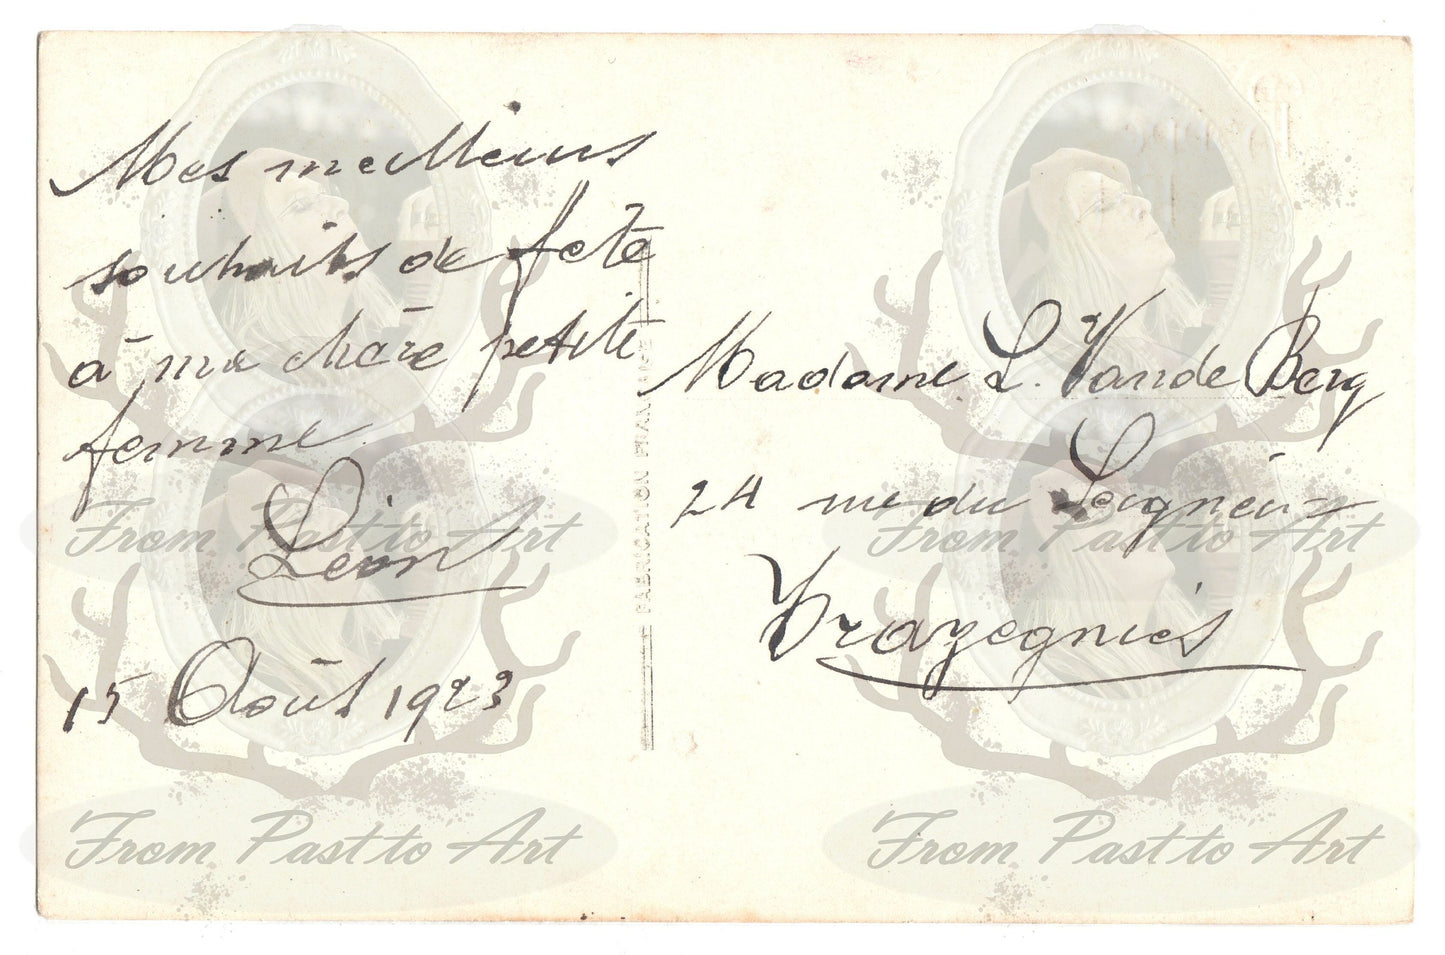 Mes meilleurs
souhaits de fête
à ma chère petite
femme.
Léon
15 Août 1923
FABRICATION FRANÇAISE
Madame L. Vande Berg
24 rue du Seigneur
Trazegnies
From Past to Art
From Past to Art
From Past to Art
From Past to Art